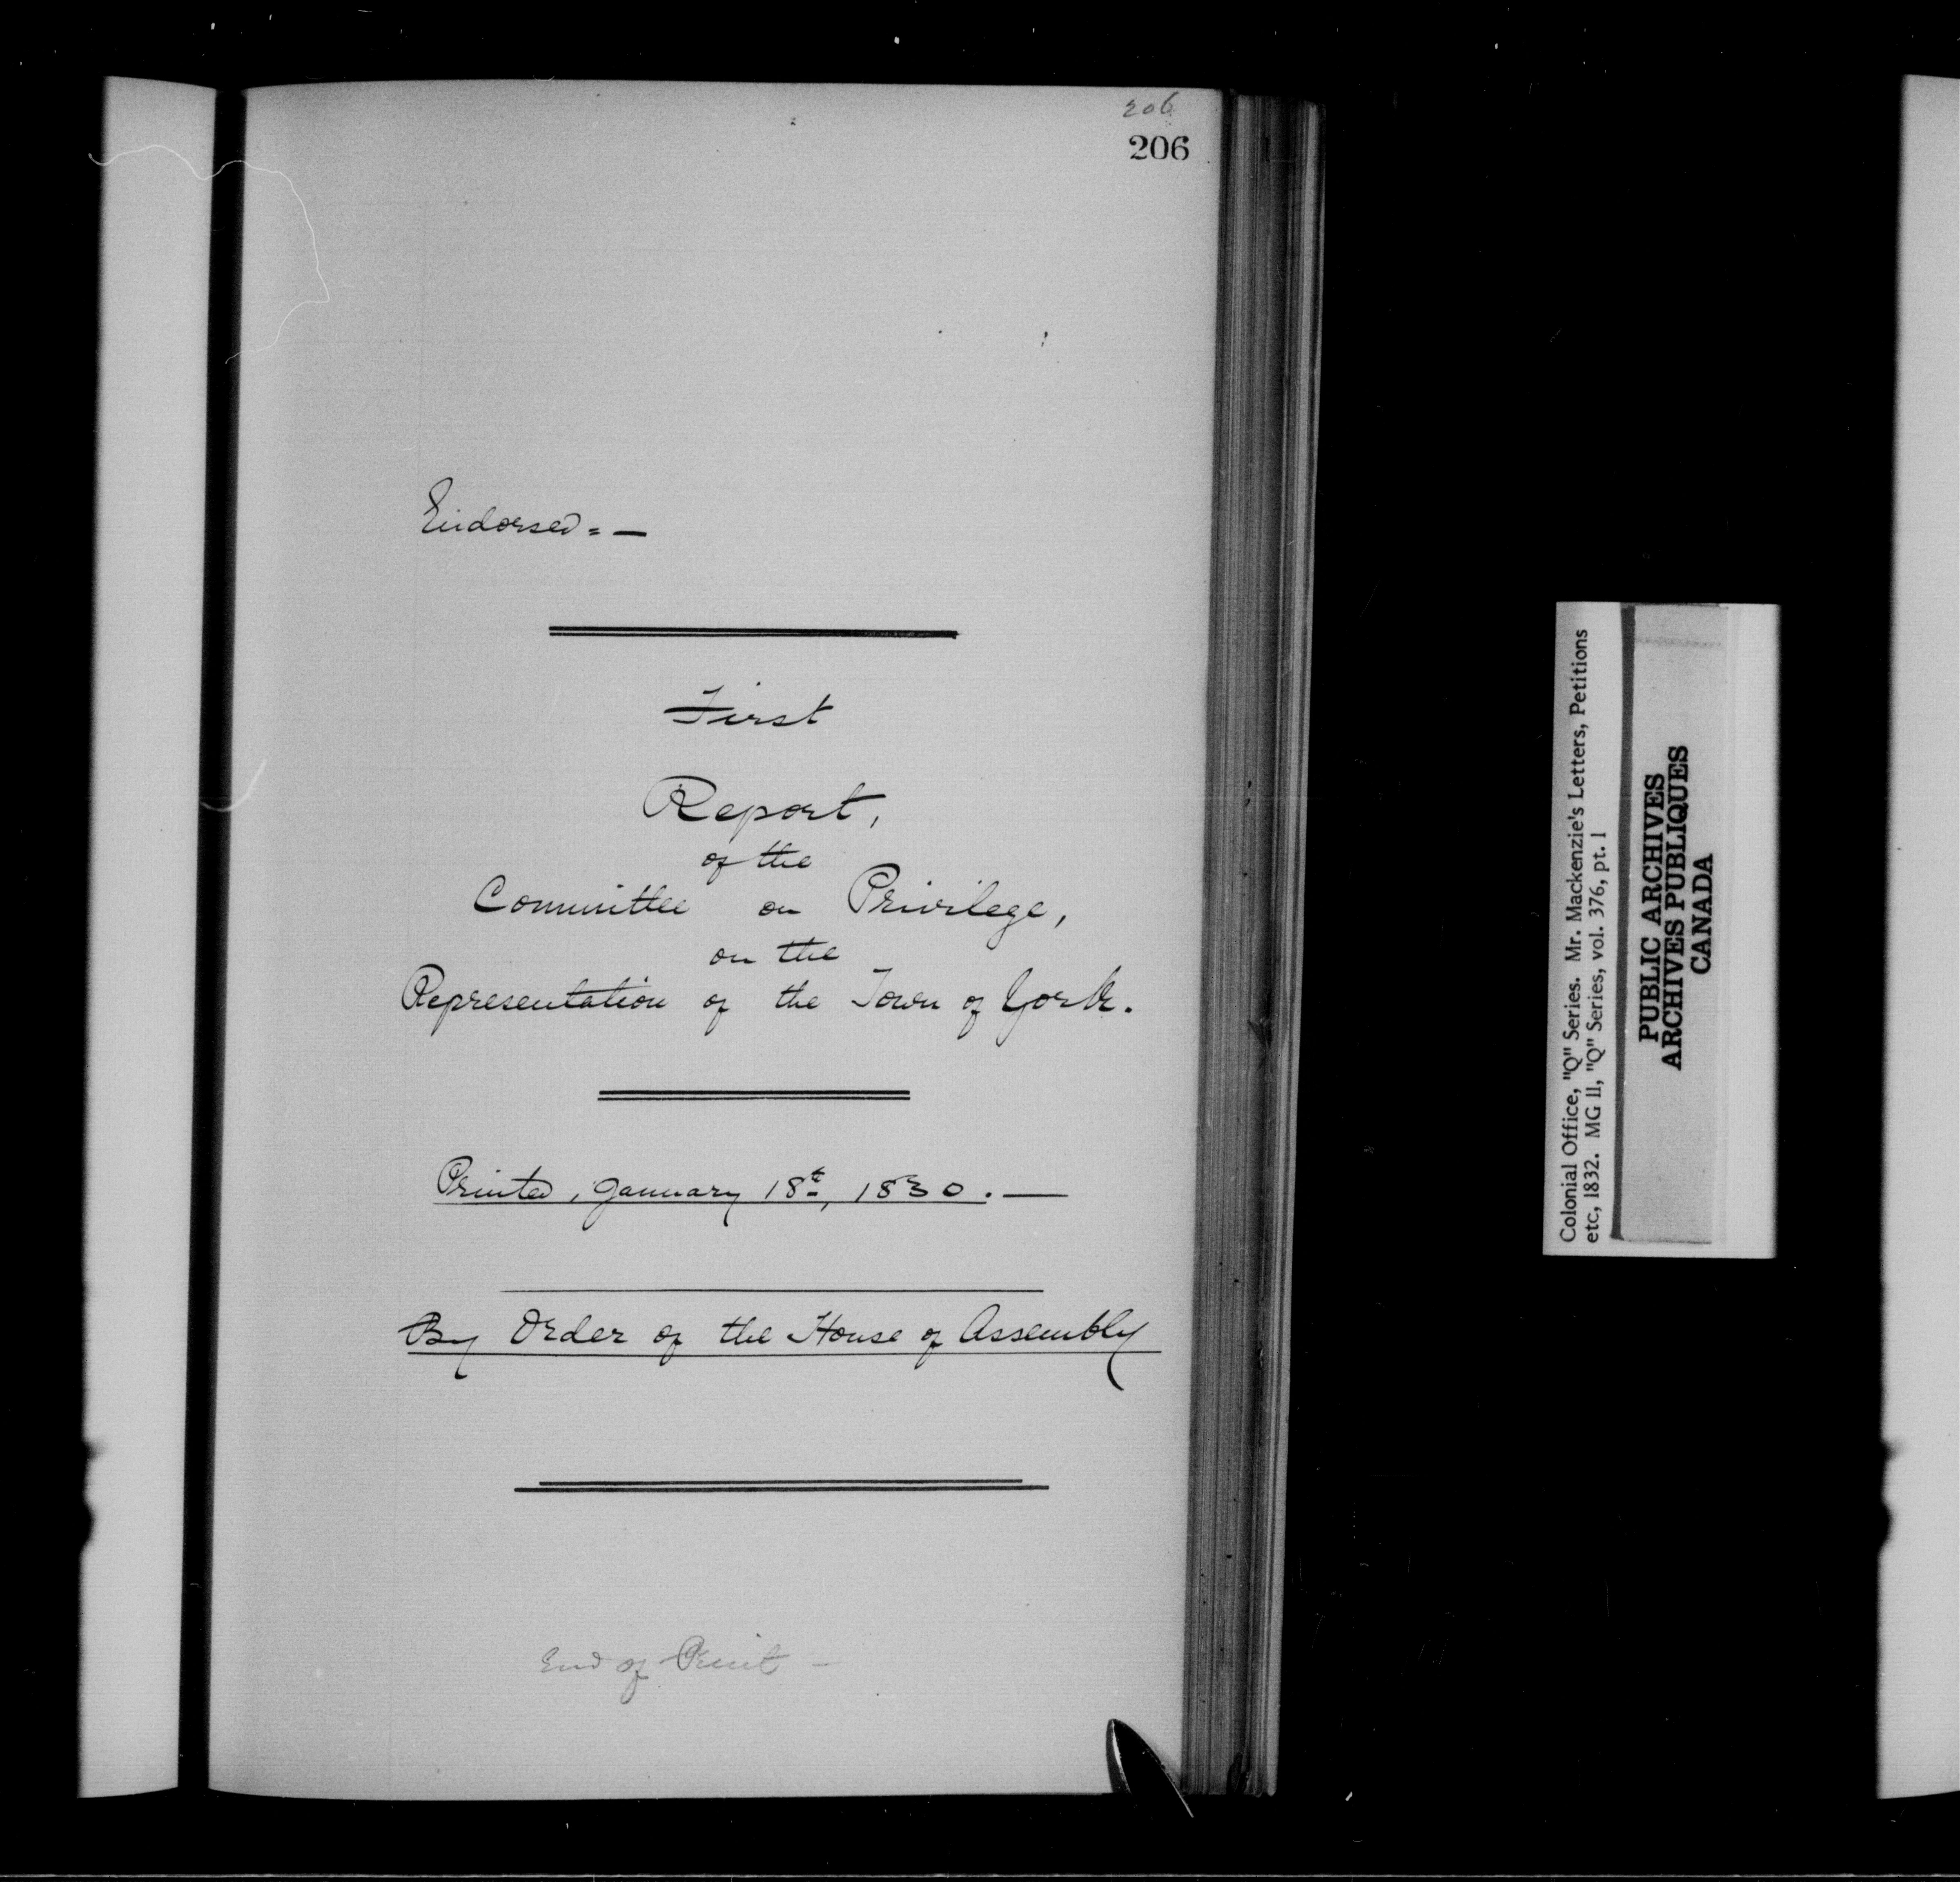 206
206
Endorsed = —
First
Report,
of the
Committee on Privilege,
on the
Representation of the Town of York.
Printed, January 18t, 1830. —
By Order of the House of Assembly
End of Print —
Colonial Office, "Q" Series. Mr. Mackenzie's Letters, Petitions
etc, 1832. MG 11, "Q" Series, vol. 376, pt. 1
PUBLIC ARCHIVES
ARCHIVES PUBLIQUES
CANADA